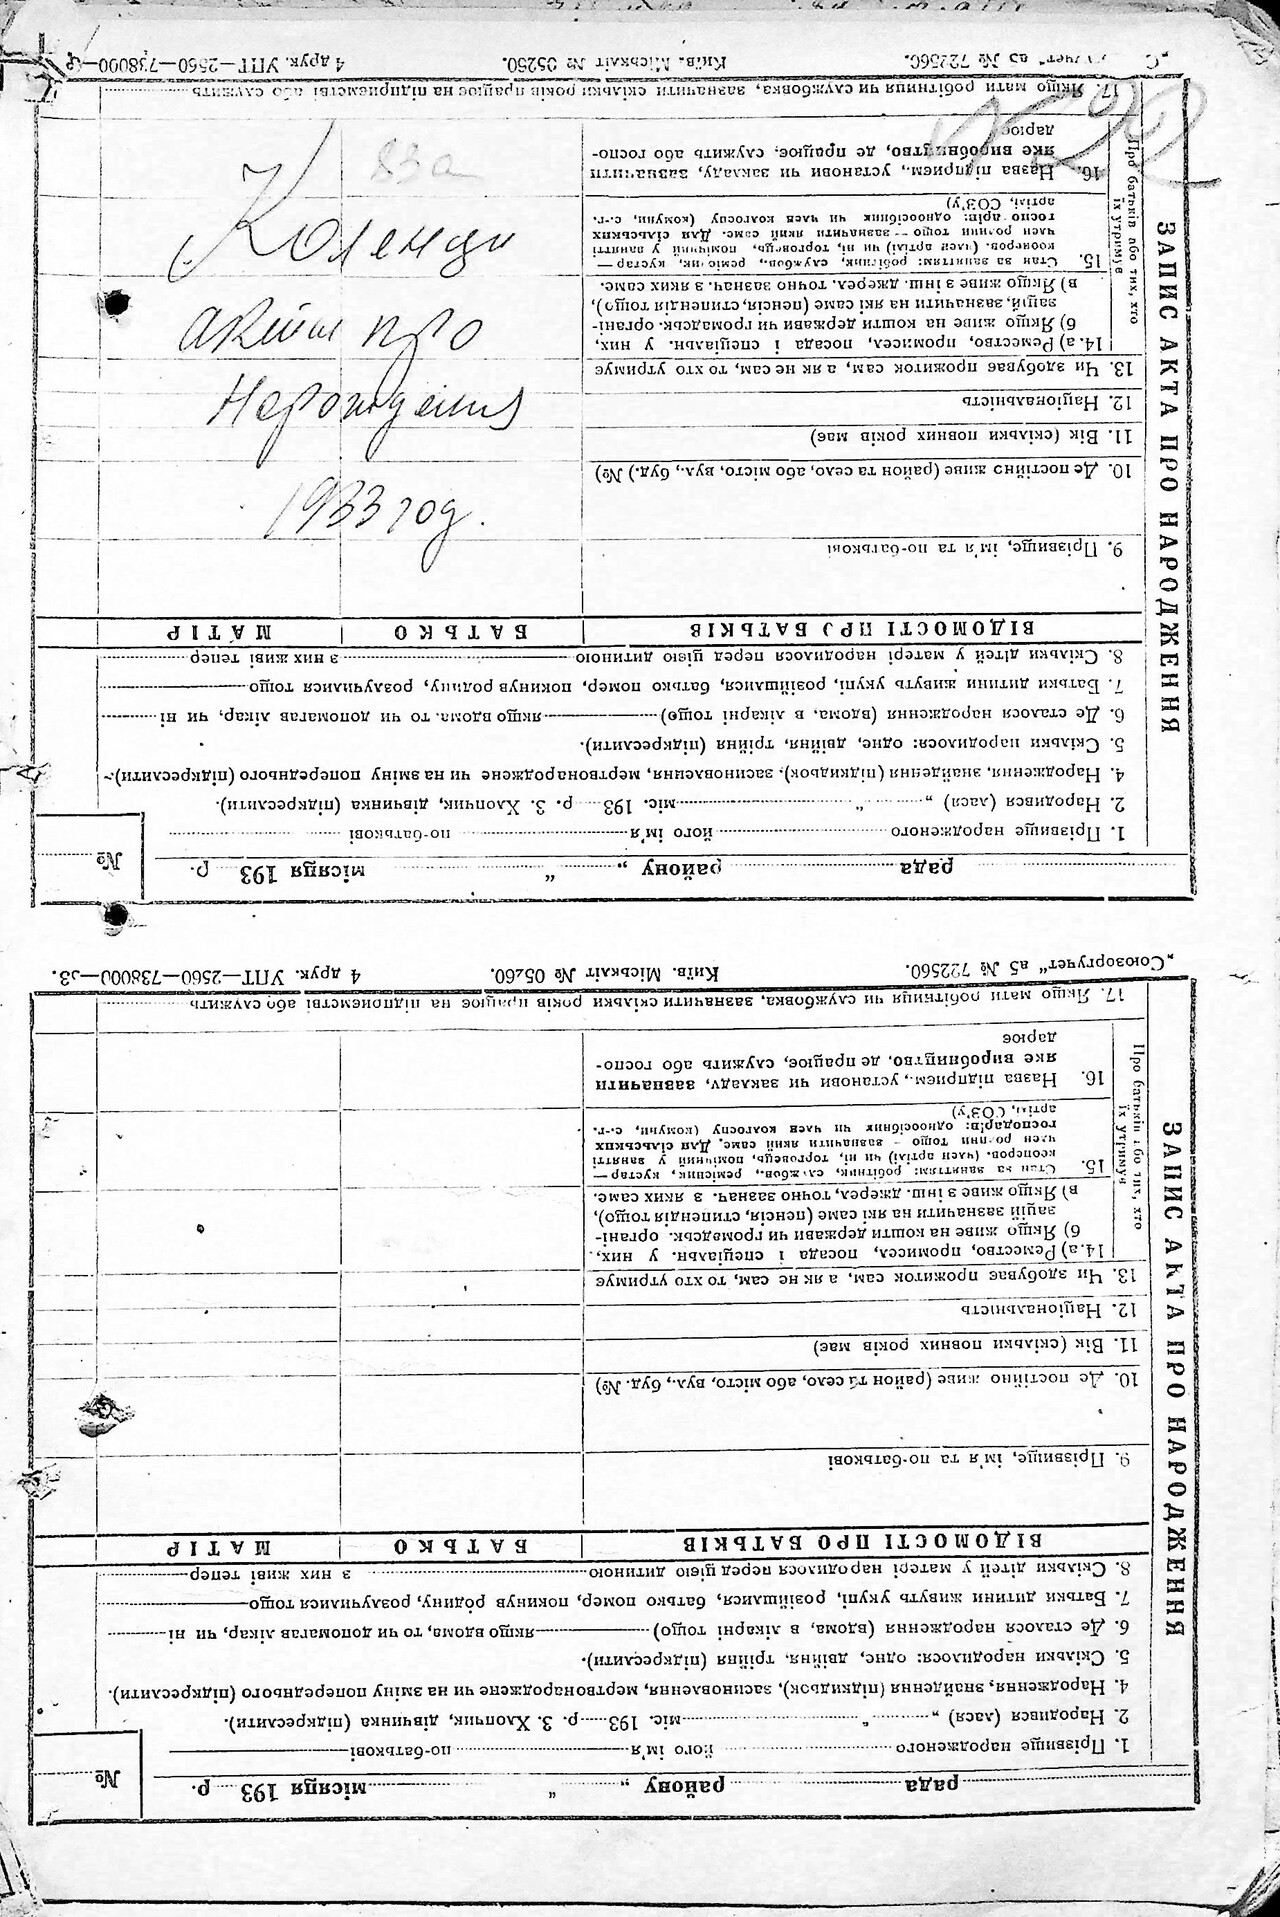 83а
Коленци
актів про
1933 год.
ЗАПИС АКТА ПРО НАРОДЖЕННЯ
рада району „ “ місяця 193 р. №
1. Прізвище народженого його ім'я по-батькові
2. Народився (лася) „ “ міс. 193 р. 3. Хлопчик, дівчинка (підкреслити).
4. Народження, знайдення (підкидьок), засиновлення, мертвонароджене чи на зміну попереднього (підкреслити).
5. Скільки народилося: одне, двійня, трійня (підкреслити).
6. Де сталося народження (вдома, в лікарні тощо) якщо вдома, то чи допомагав лікар, чи ні
7. Батьки дитини живуть укупі, розійшлися, батько помер, покинув родину, розлучилися тощо
8. Скільки дітей у матері народилося перед цією дитиною з них живі тепер
ВІДОМОСТІ ПРО БАТЬКІВ БАТЬКО МАТІР
9. Прізвище, ім'я та по-батькові
10. Де постійно живе (район та село, або місто, вул., буд. №)
11. Вік (скільки повних років має)
12. Національність
13. Чи здобуває прожиток сам, а як не сам, то хто утримує
Про батьків або тих, хто їх утримує
14. а) Ремество, промисел, посада і спеціальн. у них,
б) Якщо живе на кошти держави чи громадськ. органі-
зацій зазначити на які саме (пенсія, стипендія тощо),
в) Якщо живе з інш. джерел, точно зазнач. з яких саме.
15. Стан за заняттям: робітник, службов., ремісник, кустар —
кооперов. (член артілі) чи ні, торговець, помічний у занятті
член родини тощо - зазначити який саме. Для сільських
господарів: одноосібник чи член колгоспу (комуни, с.-г.
артілі, СОЗ'у)
16. Назва підприєм., установи чи закладу, зазначити
яке виробництво, де працює, служить або госпо-
дарює
17. Якщо мати робітниця чи службовка, зазначити скільки років працює на підприємстві або служить
„Союзоргучет“ а5 № 722560. Київ. Міськліт № 05260. 4 друк. УПТ—2560—738000—33.
ЗАПИС АКТА ПРО НАРОДЖЕННЯ
рада району „ “ місяця 193 р. №
1. Прізвище народженого його ім'я по-батькові
2. Народився (лася) „ “ міс. 193 р. 3. Хлопчик, дівчинка (підкреслити).
4. Народження, знайдення (підкидьок), засиновлення, мертвонароджене чи на зміну попереднього (підкреслити).
5. Скільки народилося: одне, двійня, трійня (підкреслити).
6. Де сталося народження (вдома, в лікарні тощо) якщо вдома, то чи допомагав лікар, чи ні
7. Батьки дитини живуть укупі, розійшлися, батько помер, покинув родину, розлучилися тощо
8. Скільки дітей у матері народилося перед цією дитиною з них живі тепер
ВІДОМОСТІ ПРО БАТЬКІВ БАТЬКО МАТІР
9. Прізвище, ім'я та по-батькові
10. Де постійно живе (район та село, або місто, вул., буд.) №)
11. Вік (скільки повних років має)
12. Національність
13. Чи здобуває прожиток сам, а як не сам, то хто утримує
Про батьків або тих, хто їх утримує
14. а) Ремество, промисел, посада і спеціальн. у них,
б) Якщо живе на кошти держави чи громадськ. органі-
зацій, зазначити на які саме (пенсія, стипендія тощо),
в) Якщо живе з інш. джерел. точно зазнач. з яких саме.
15. Стан за заняттям: робітник, службов., ремісник, кустар —
кооперов. (член артілі) чи ні, торговець, помічний у занятті
член родини тощо — зазначити який саме. Для сільських
господарів: одноосібник чи член колгоспу (комуни, с.-г.
артілі, СОЗ'у)
16. Назва підприєм., установи чи закладу, зазначити
яке виробництво, де працює, служить або госпо-
дарює
17. Якщо мати робітниця чи службовка, зазначити скільки років працює на підприємстві або служить
учет“ а5 № 722560. Київ. Міськліт № 05250. 4 друк. УПТ—2560—738000—